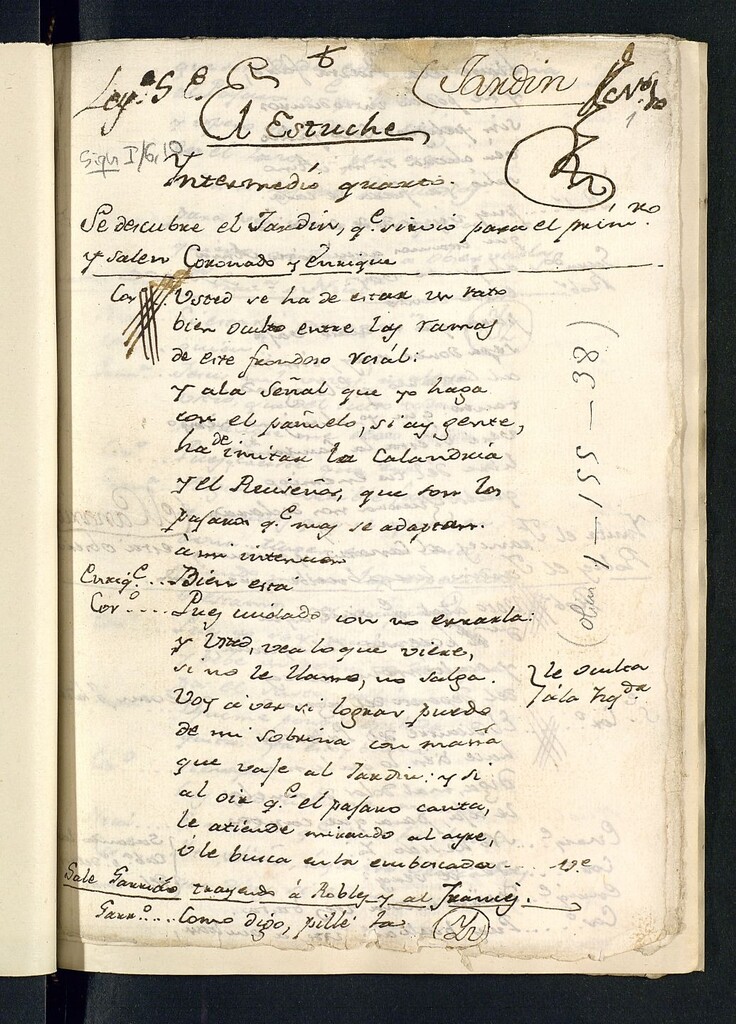 Leg.º 5 C.
Jardin
El Estuche
Intermedió quarto.
Se descubre el Jardin, q.e sirvió para el prim.ro
y salen Coronado y Enrique
Cor
Usted se ha de estar un rato
bien oculto entre las ramas
de este frondoso rosál:
y ala señal que yo haga
con el pañuelo, si ay gente,
ha de imitar la Calandria
y el Ruiseñor, que son los
pajaros q.e mas se adaptan
à mi intencion
Enriq.e .. Bien está
Cor.º .... Pues cuidado con no errarla:
y Usted, vea lo que viere,
si no le llamo, no salga.
le oculta
à la Izq.da
Voy à ver si lograr puedo
de mi sobrina con maña
que vaje al Jardin: y si
al oir q.e el pajaro canta,
le atiende mirando al ayre,
ù le busca en la emboscada ... v.e
Sale Garrido trayendo à Robles y al Frances.
Garr.º ... Como digo, pillé la
1-155-38
1